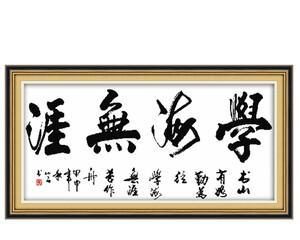 學海無涯
书山
有路
勤為
徑
學海
無涯
苦作
舟
甲申
年
秋